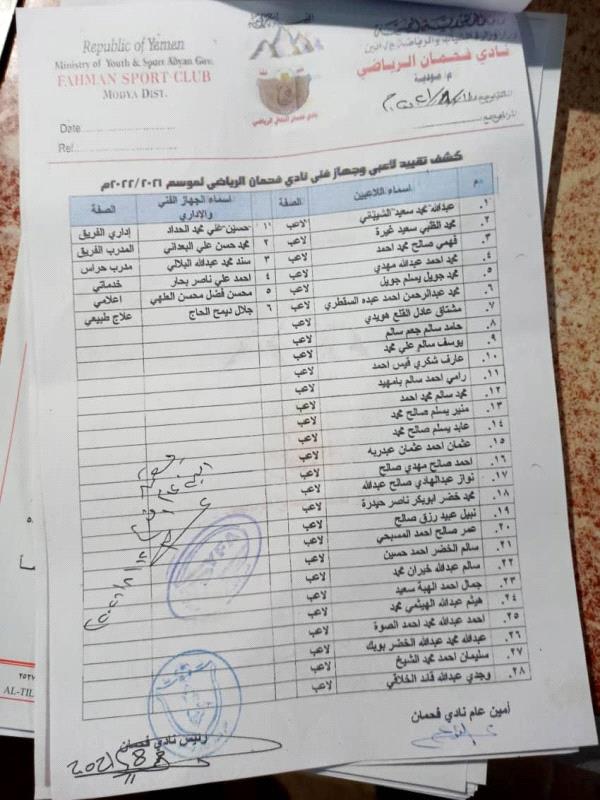 Republic of Yemen
Ministry of Youth & Sport Abyan Gov.
FAHMAN SPORT CLUB
MODYA DIST.
Date
Ref
نادي فحمان الرياضي
م/ مودية
كشف تقييد لاعبي وجهاز فني نادي فحمان الرياضي لموسم ٢٠٢٢/٢٠٢١م
م اسماء اللاعبين الصفة اسماء الجهاز الفني والإداري الصفة
.١ عبدالله محمد سعيد الشبيتي لاعب ١ حسين علي محمد الحداد إداري الفريق
.٢ محمد القلبي سعيد غيرة لاعب ٢ محمد حسن علي البعداني المدرب الفريق
.٣ فهمي صالح محمد احمد لاعب ٣ سند محمد عبدالله البلالي مدرب حراس
.٤ محمد احمد عبدالله مهدي لاعب ٤ احمد علي ناصر بحار خدماتي
.٥ محمد جويل يسلم جويل لاعب ٥ محسن فضل محسن العلهي اعلامي
.٦ محمد عبدالرحمن احمد عبده السقطري لاعب ٦ جلال ديمح الحاج علاج طبيعي
.٧ مشتاق عادل القلع هويدي لاعب
.٨ حامد سالم جعم سالم لاعب
.٩ يوسف سالم علي محمد لاعب
.١٠ عارف شكري فيس احمد لاعب
.١١ رامي احمد سالم بامهيد لاعب
.١٢ محمد سالم محمد احمد لاعب
.١٣ منير يسلم صالح محمد لاعب
.١٤ عابد يسلم صالح محمد لاعب
.١٥ عثمان احمد عثمان عبدربه لاعب
.١٦ احمد صالح مهدي صالح لاعب
.١٧ نواز عبدالهادي صالح عبدالله لاعب
.١٨ محمد خضر ابوبكر ناصر حيدرة لاعب
.١٩ نبيل عبيد رزق صالح لاعب
.٢٠ عمر صالح احمد المسبحي لاعب
.٢١ سالم الخضر احمد حسين لاعب
.٢٢ سالم عبدالله خيران محمد لاعب
.٢٣ جمال احمد الهبة سعيد لاعب
.٢٤ هيثم عبدالله الهيثمي محمد لاعب
.٢٥ احمد عبدالله محمد احمد الصوة لاعب
.٢٦ عبدالله محمد عبدالله الخضر بوبك لاعب
.٢٧ سليمان احمد محمد الشيخ لاعب
.٢٨ وجدي عبدالله قائد الخلاقي لاعب
أمين عام نادي فحمان
رئيس نادي فحمان